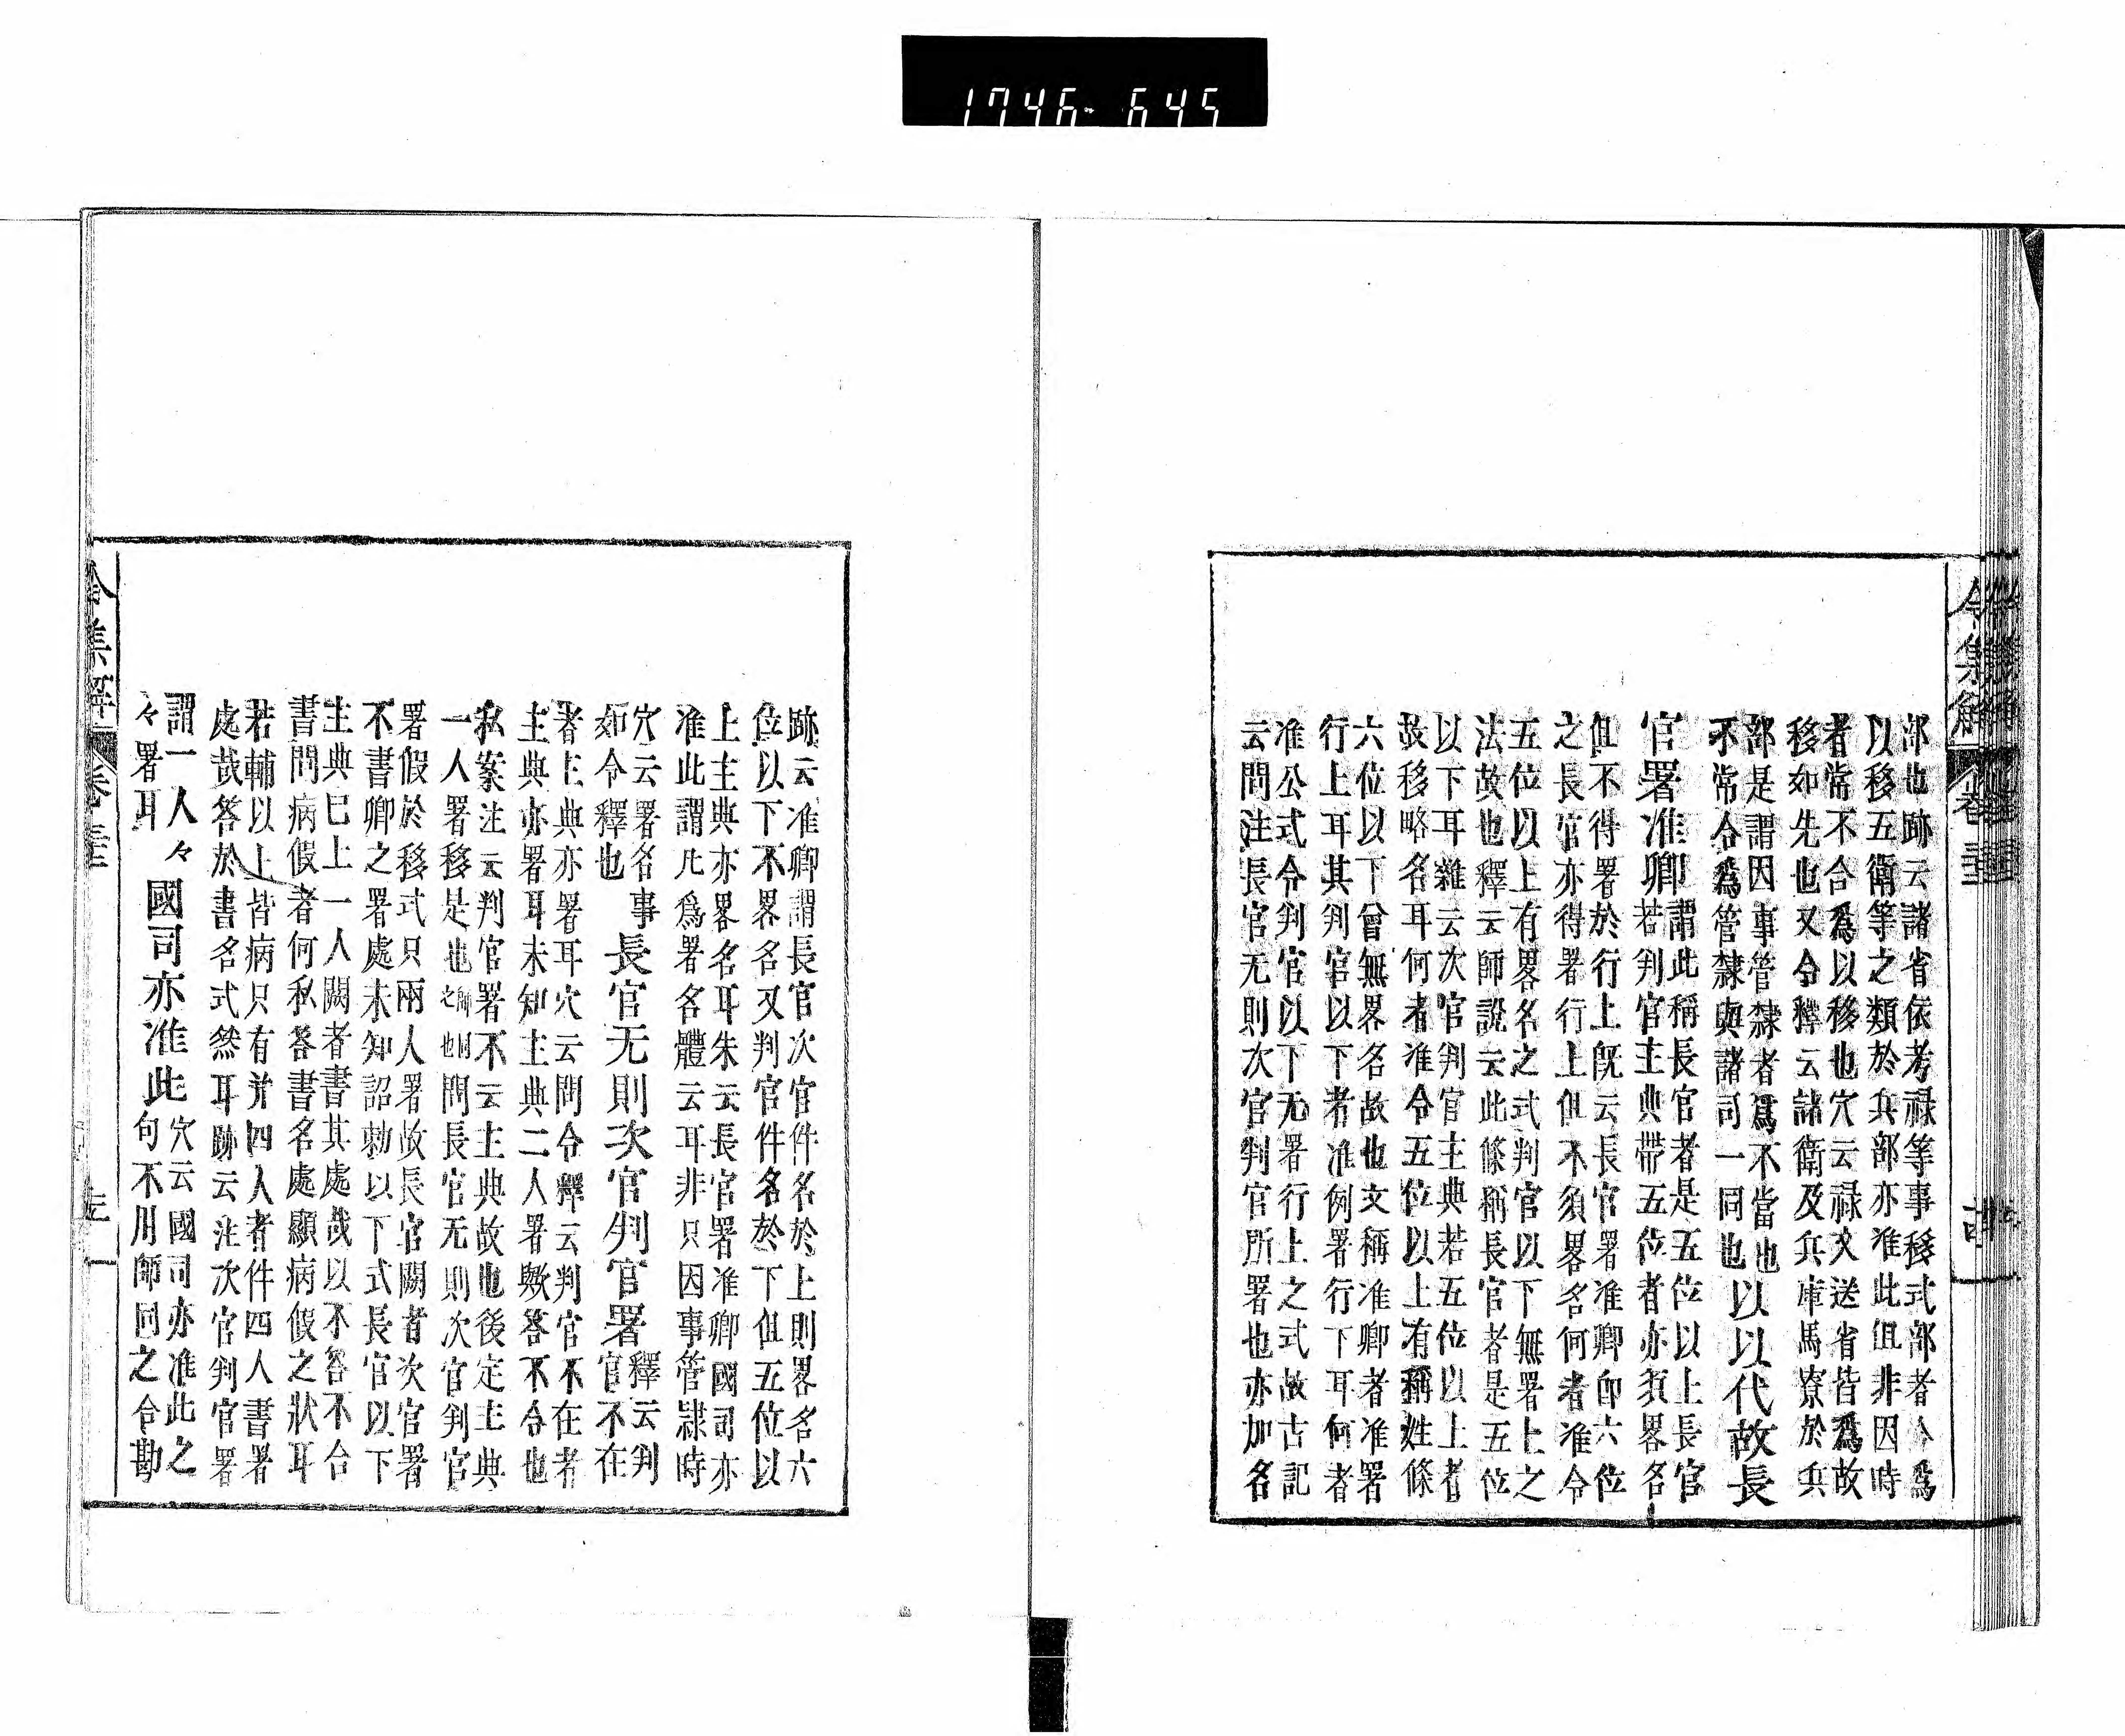 1746-645
令集解 卷三十二
部也跡云諸省依考祿等事移式部者今爲
以移五衞等之類於兵部亦准此伹非因時
者常不合爲以移也穴云祿文送省皆爲故
移如先也又令釋云諸衞及兵庫馬寮於兵
部是謂因事管隸者爲不當也
不常合爲管隸與諸司一同也
以以代故長
官署准卿
謂此稱長官者是五位以上長官
若判官主典帶五位者亦須畧名
伹不得署於行上旣云長官署准卿卽六位
之長官亦得署行上伹不須畧名何者准令
五位以上有畧名之式判官以下無署上之
法故也釋云師說云此條稱長官者是五位
以下耳雜云次官判官主典若五位以上者
故移略名耳何者准令五位以上有稱姓條
六位以下曾無畧名故也文稱准卿者准署
行上耳其判官以下者准例署行下耳何者
准公式令判官以下无署行上之式故古記
云問注長官无則次官判官所署也亦加名
跡云准卿謂長官次官件名於上則畧名六
位以下不畧名又判官件名於下伹五位以
上主典亦畧名耳朱云長官署准卿國司亦
准此謂凡爲署名體云耳非只因事管隸時
穴云署名事
如令釋也
長官无則次官判官署
釋云判
官不在
者主典亦署耳穴云問令釋云判官不在者
主典亦署耳未知主典二人署歟答不令也
私案注云判官署不云主典故也後定主典
一人署移是也
師同
之也
問長官无則次官判官
署假於移式只兩人署故長官闕者次官署
不書卿之署處未知詔勅以下式長官以下
主典已上一人闕者書其處哉以不答不合
書問病假者何私答書名處顯病假之狀耳
若輔以上皆病只有并四人者件四人書署
處哉答於書名式然耳跡云注次官判官署
謂一人々
々署耳
國司亦准此
穴云國司亦准此之
句不用師同之合勘
令集解 卷三十二